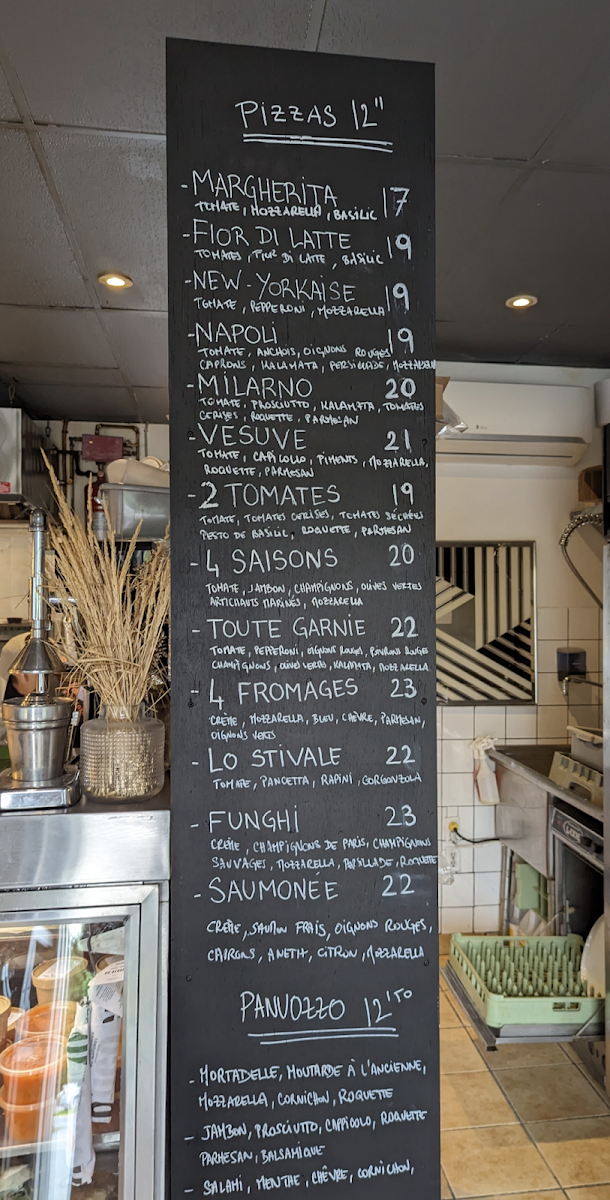 PIZZAS 12"
- MARGHERITA 17
TOMATE, MOZZARELLA, BASILIC
- FIOR DI LATTE 19
TOMATES, FIOR DI LATTE, BASILIC
- NEW-YORKAISE 19
TOMATE, PEPPERONI, MOZZARELLA
- NAPOLI 19
TOMATE, ANCHOIS, OIGNONS ROUGES
CAPRONS, KALAMATA, PERSILLADE, MOZZARELLA
- MILARNO 20
TOMATE, PROSCIUTTO, KALAMATA, TOMATES
CERISES, ROQUETTE, PARMESAN
- VESUVE 21
TOMATE, CAPICOLLO, PIMENTS, MOZZARELLA,
ROQUETTE, PARMESAN
- 2 TOMATES 19
TOMATE, TOMATES CERISES, TOMATES SÉCHÉES
PESTO DE BASILIC, ROQUETTE, PARMESAN
- 4 SAISONS 20
TOMATE, JAMBON, CHAMPIGNONS, OLIVES VERTES
ARTICHAUTS MARINÉS, MOZZARELLA
- TOUTE GARNIE 22
TOMATE, PEPPERONI, OIGNONS ROUGES, POIVRONS ROUGES
CHAMPIGNONS, OLIVES VERTES, KALAMATA, MOZZARELLA
- 4 FROMAGES 23
CRÈME, MOZZARELLA, BLEU, CHÈVRE, PARMESAN,
OIGNONS VERTS
- LO STIVALE 22
TOMATE, PANCETTA, RAPINI, GORGONZOLA
- FUNGHI 23
CRÈME, CHAMPIGNONS DE PARIS, CHAMPIGNONS
SAUVAGES, MOZZARELLA, PERSILLADE, ROQUETTE
- SAUMONÉE 22
CRÈME, SAUMON FRAIS, OIGNONS ROUGES,
CAPRONS, ANETH, CITRON, MOZZARELLA
PANUOZZO 12
- MORTADELLE, MOUTARDE À L'ANCIENNE,
MOZZARELLA, CORNICHON, ROQUETTE
- JAMBON, PROSCIUTTO, CAPPICOLO, ROQUETTE
PARMESAN, BALSAMIQUE
- SALAMI, MENTHE, CHÈVRE, CORNICHON,